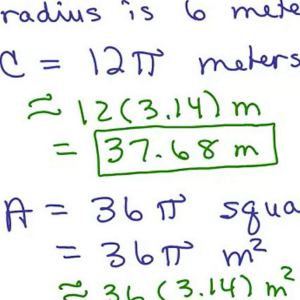 radius is 6 mete
C = 12π meters
≈ 12(3.14) m
= 37.68 m
A = 36π squa
= 36π m²
≈ 36(3.14) m²